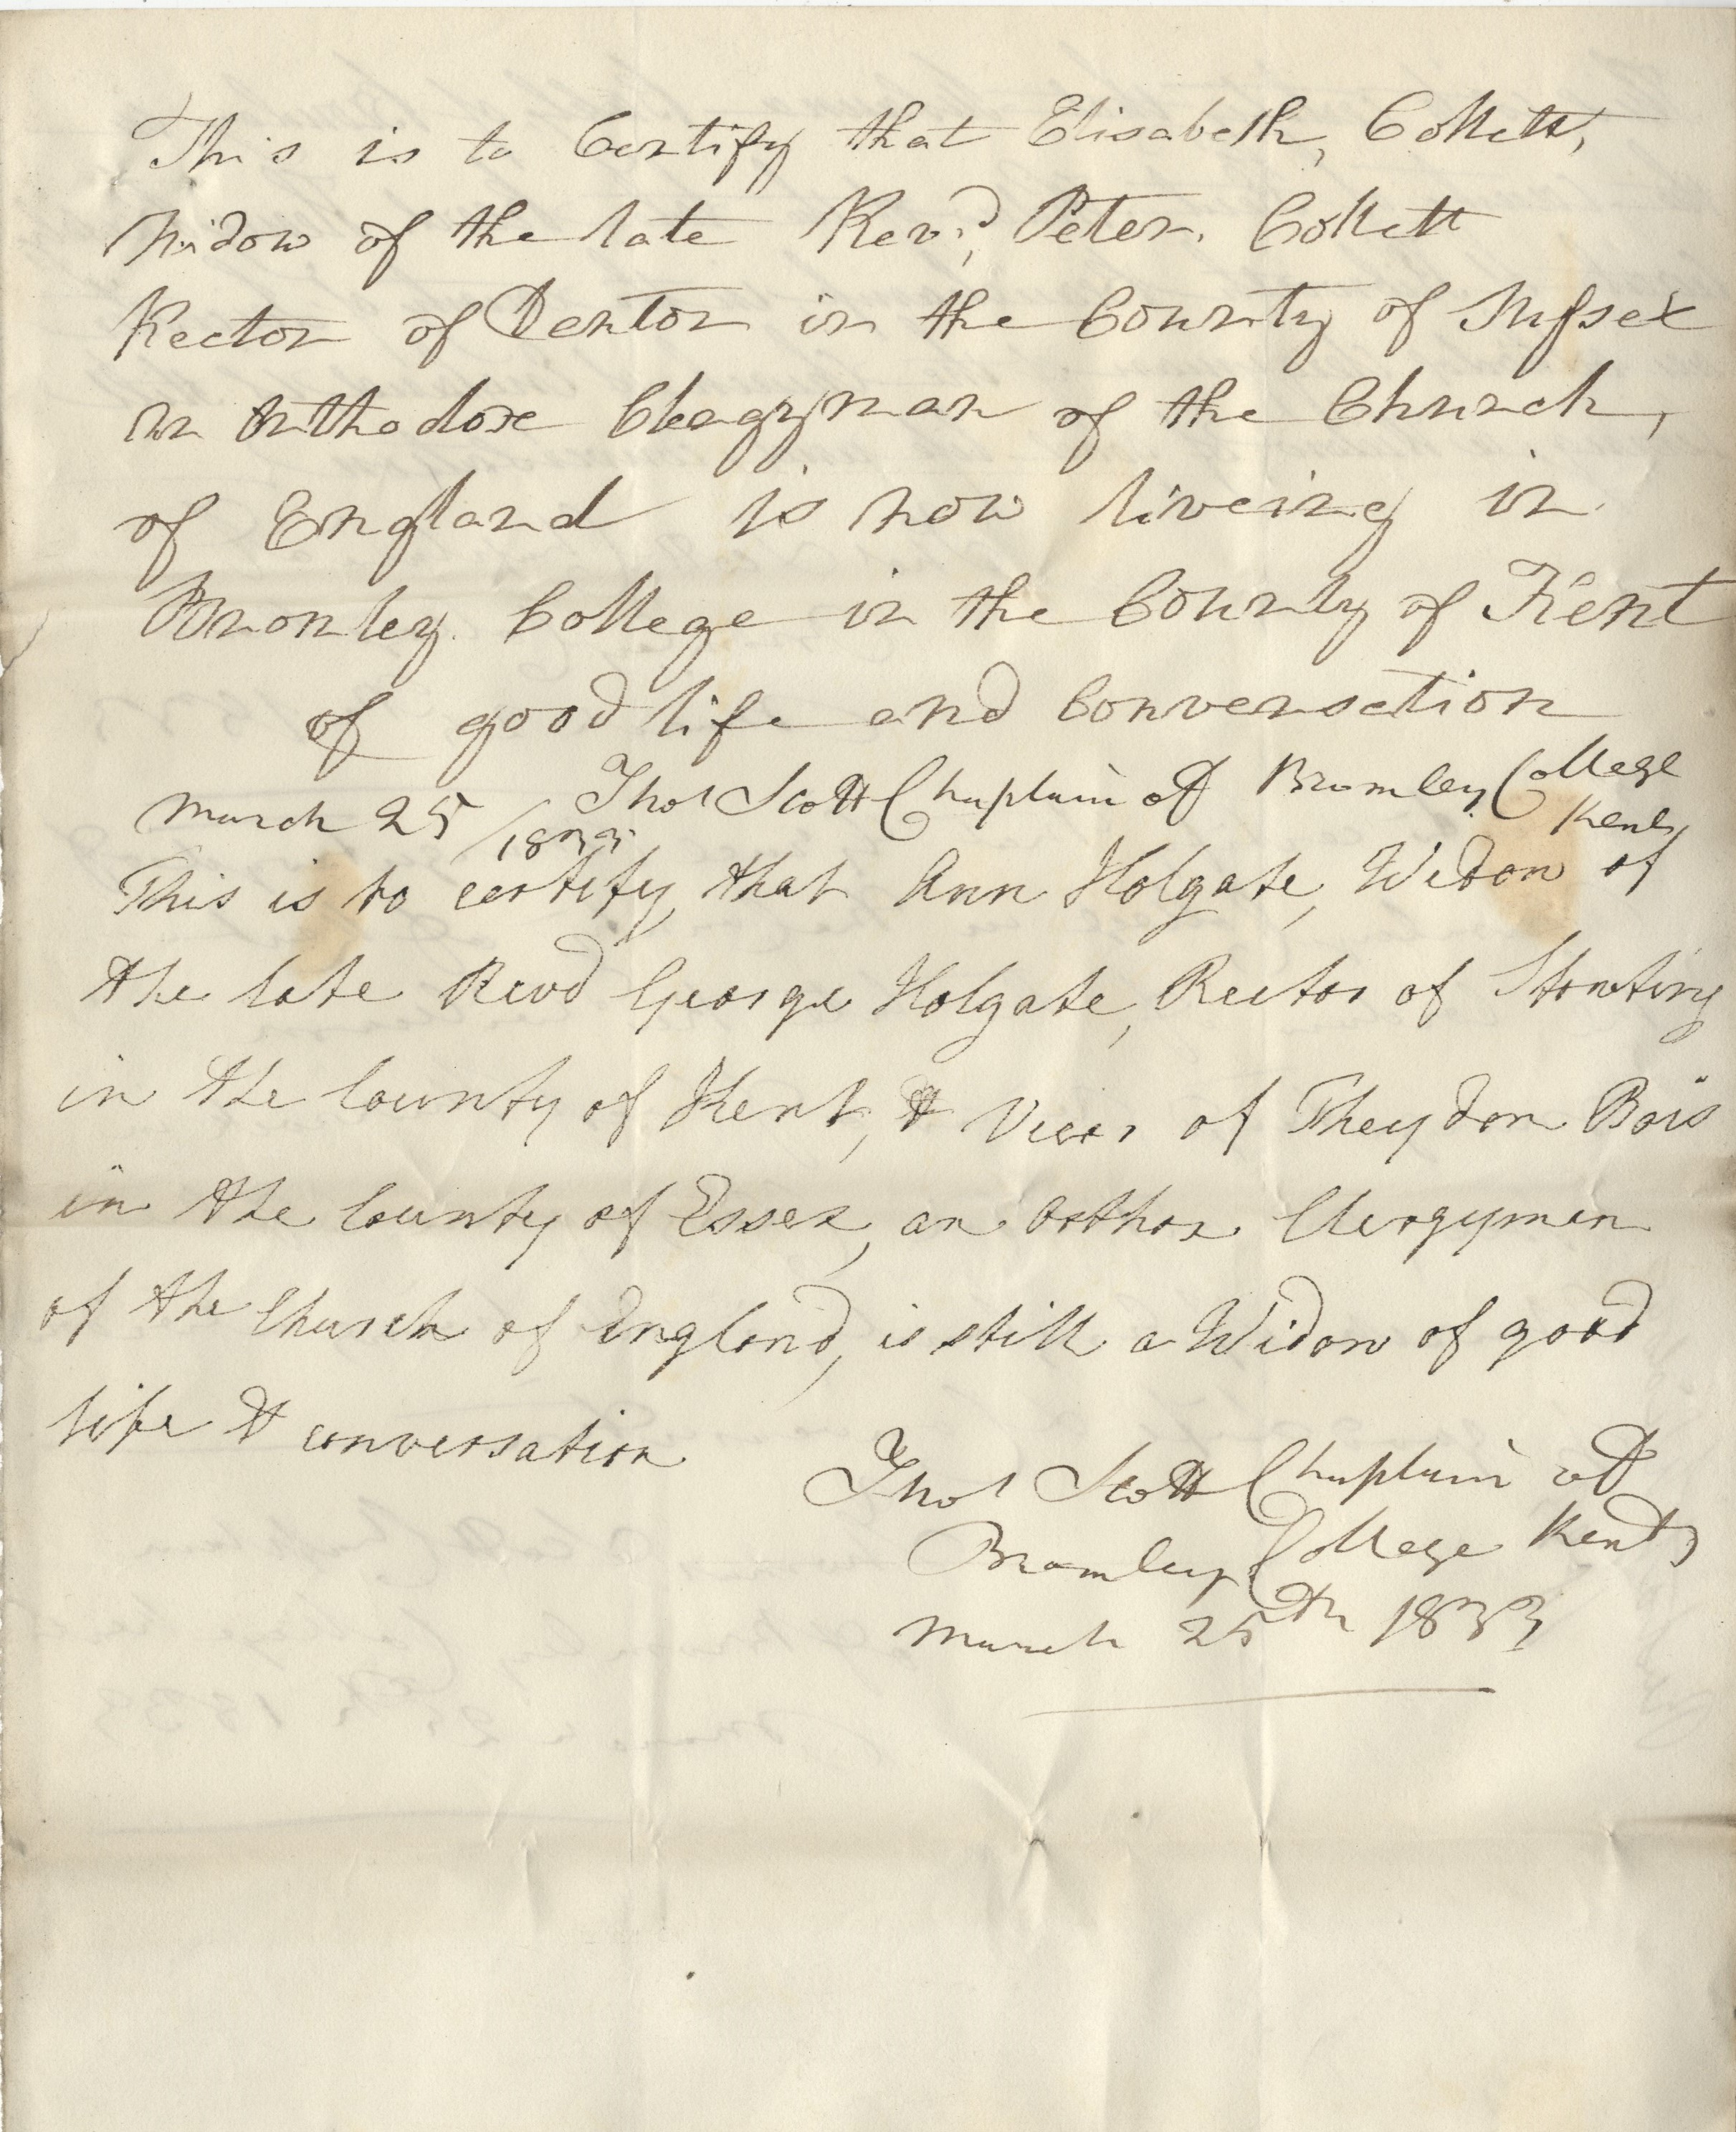 This is to Certify that Elisabeth, Collett,
Widow of the late Revd, Peter. Collett
Rector of Denton in the County of Sussex
an Orthodox Cleagyman of the Church,
of England is now liveing in
Bromley. College in the County of Kent
of good life and Conversation
March 25/1833 Thos Scott Chaplain of Bromley College Kent,
This is to certify, that Ann Holgate, Widow of
the late Revd George Holgate, Rector of Stowting
in the County of Kent, & Vicar of Theydon Bois
in the County of Essex, an Orthox Clergyman
of the Church of England, is still a Widow of good
life & conversation
Thos Scott Chaplain of
Bromley College Kent,
March 25th 1833